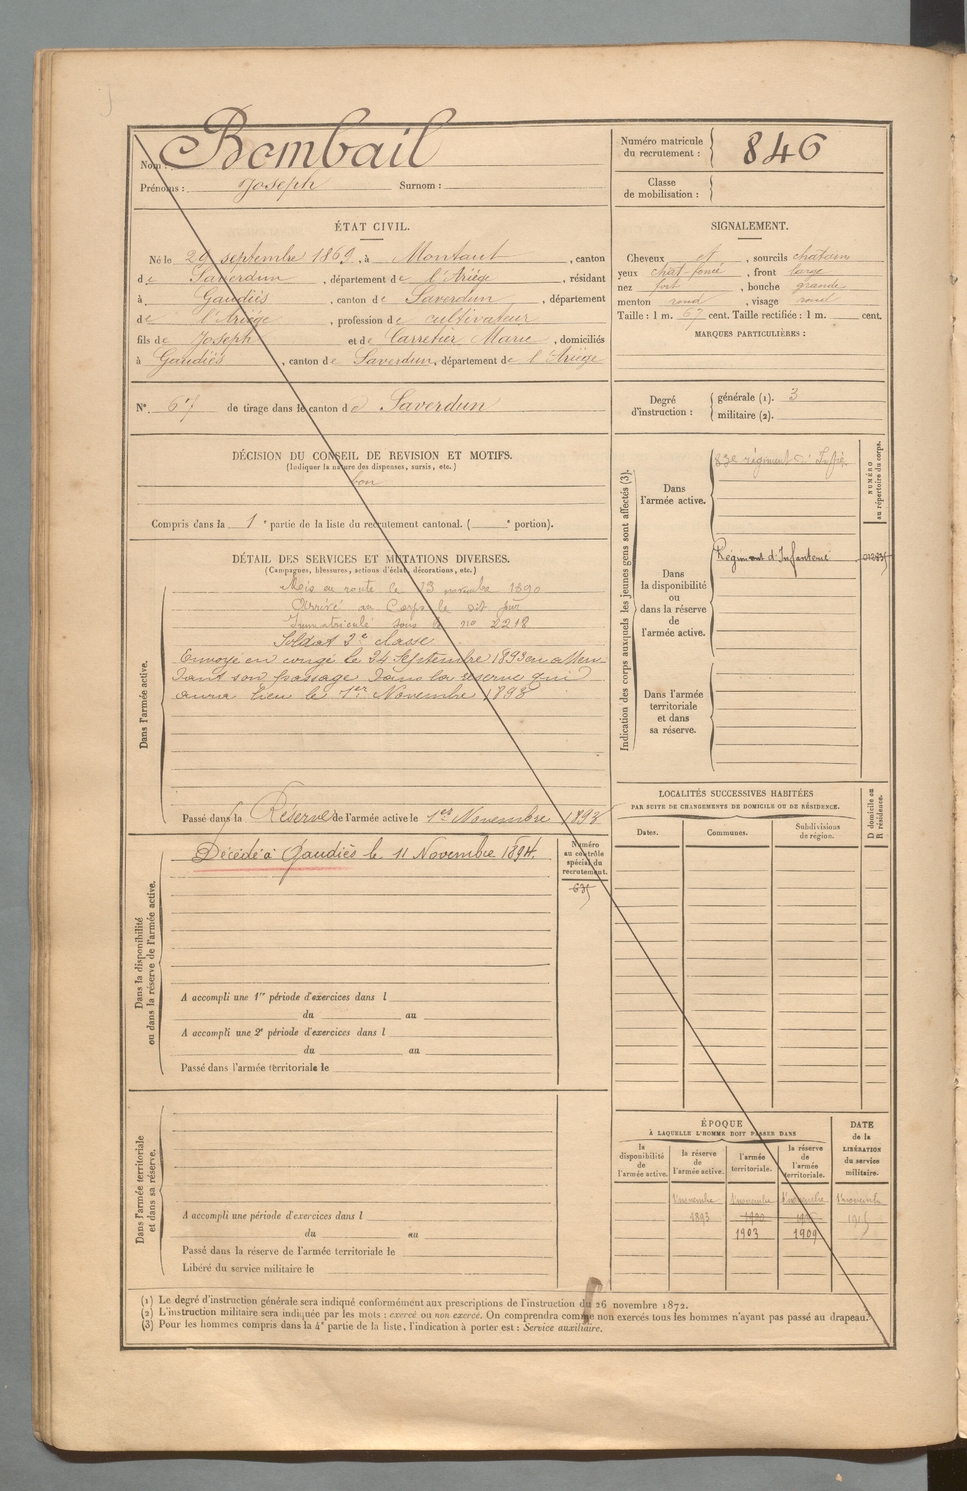 Nom : Bombail
Prénoms : Joseph Surnom :
Numéro matricule
du recrutement : 846
Classe
de mobilisation :
ÉTAT CIVIL.
Né le 29 septembre 1869, à Montaut, canton
de Saverdun, département de l'Ariège, résidant
à Gaudiès, canton de Saverdun, département
de l'Ariège, profession de cultivateur
fils de Joseph et de Carretier Marie, domiciliés
à Gaudiès, canton de Saverdun, département de l'Ariège
SIGNALEMENT.
Cheveux et, sourcils chatains
yeux chat-foncé, front large
nez fort, bouche grande
menton rond, visage rond
Taille : 1 m. 67 cent. Taille rectifiée : 1 m. cent.
MARQUES PARTICULIÈRES :
N° 67 de tirage dans le canton de Saverdun
Degré
d'instruction :
générale (1). 3
militaire (2).
DÉCISION DU CONSEIL DE REVISION ET MOTIFS.
(Indiquer la nature des dispenses, sursis, etc.)
bon
Compris dans la 1e partie de la liste du recrutement cantonal. ( e portion).
DÉTAIL DES SERVICES ET MUTATIONS DIVERSES.
(Campagnes, blessures, actions d'éclat, décorations, etc.)
Dans l'armée active.
Mis en route le 13 novembre 1890
Arrivé au Corps le dit jour
Immatriculé sous le no 2218
Soldat 2e classe
Envoyé en congé le 24 Septembre 1893 en atten-
dant son passage dans la réserve qui
aura lieu le 1er Novembre 1893
Passé dans la Réserve de l'armée active le 1er Novembre 1893
Indication des corps auxquels les jeunes gens sont affectés (3).
NUMÉRO
au répertoire du corps.
Dans
l'armée active.
83e régiment d'Infrie.
Dans
la disponibilité
ou
dans la réserve
de
l'armée active.
Régiment d'Infanterie
Dans l'armée
territoriale
et dans
sa réserve.
Dans la disponibilité
ou dans la réserve de l'armée active.
Décédé à Gaudiès le 11 Novembre 1894.
Numéro
au contrôle
spécial du
recrutement.
635
A accompli une 1re période d'exercices dans l
du au
A accompli une 2e période d'exercices dans l
du au
Passé dans l'armée territoriale le
LOCALITÉS SUCCESSIVES HABITÉES
PAR SUITE DE CHANGEMENTS DE DOMICILE OU DE RÉSIDENCE.
D domicile ou
R résidence.
Dates. Communes. Subdivisions
de région.
Dans l'armée territoriale
et dans sa réserve.
A accompli une période d'exercices dans l
du au
Passé dans la réserve de l'armée territoriale le
Libéré du service militaire le
ÉPOQUE
À LAQUELLE L'HOMME DOIT PASSER DANS
la
disponibilité
de
l'armée active.
la réserve
de
l'armée active.
l'armée
territoriale.
la réserve
de
l'armée
territoriale.
DATE
de la
LIBÉRATION
du service
militaire.
1 novembre 1 novembre 1 novembre 1 novembre
1893 1915
1903 1909
(1) Le degré d'instruction générale sera indiqué conformément aux prescriptions de l'instruction du 26 novembre 1872.
(2) L'instruction militaire sera indiquée par les mots : exercé ou non exercé. On comprendra comme non exercés tous les hommes n'ayant pas passé au drapeau.
(3) Pour les hommes compris dans la 4e partie de la liste, l'indication à porter est : Service auxiliaire.